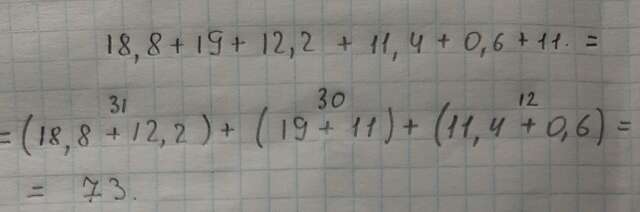 18,8 + 19 + 12,2 + 11,4 + 0,6 + 11. =
31 30 12
= (18,8 + 12,2) + (19 + 11) + (11,4 + 0,6) =
= 73.